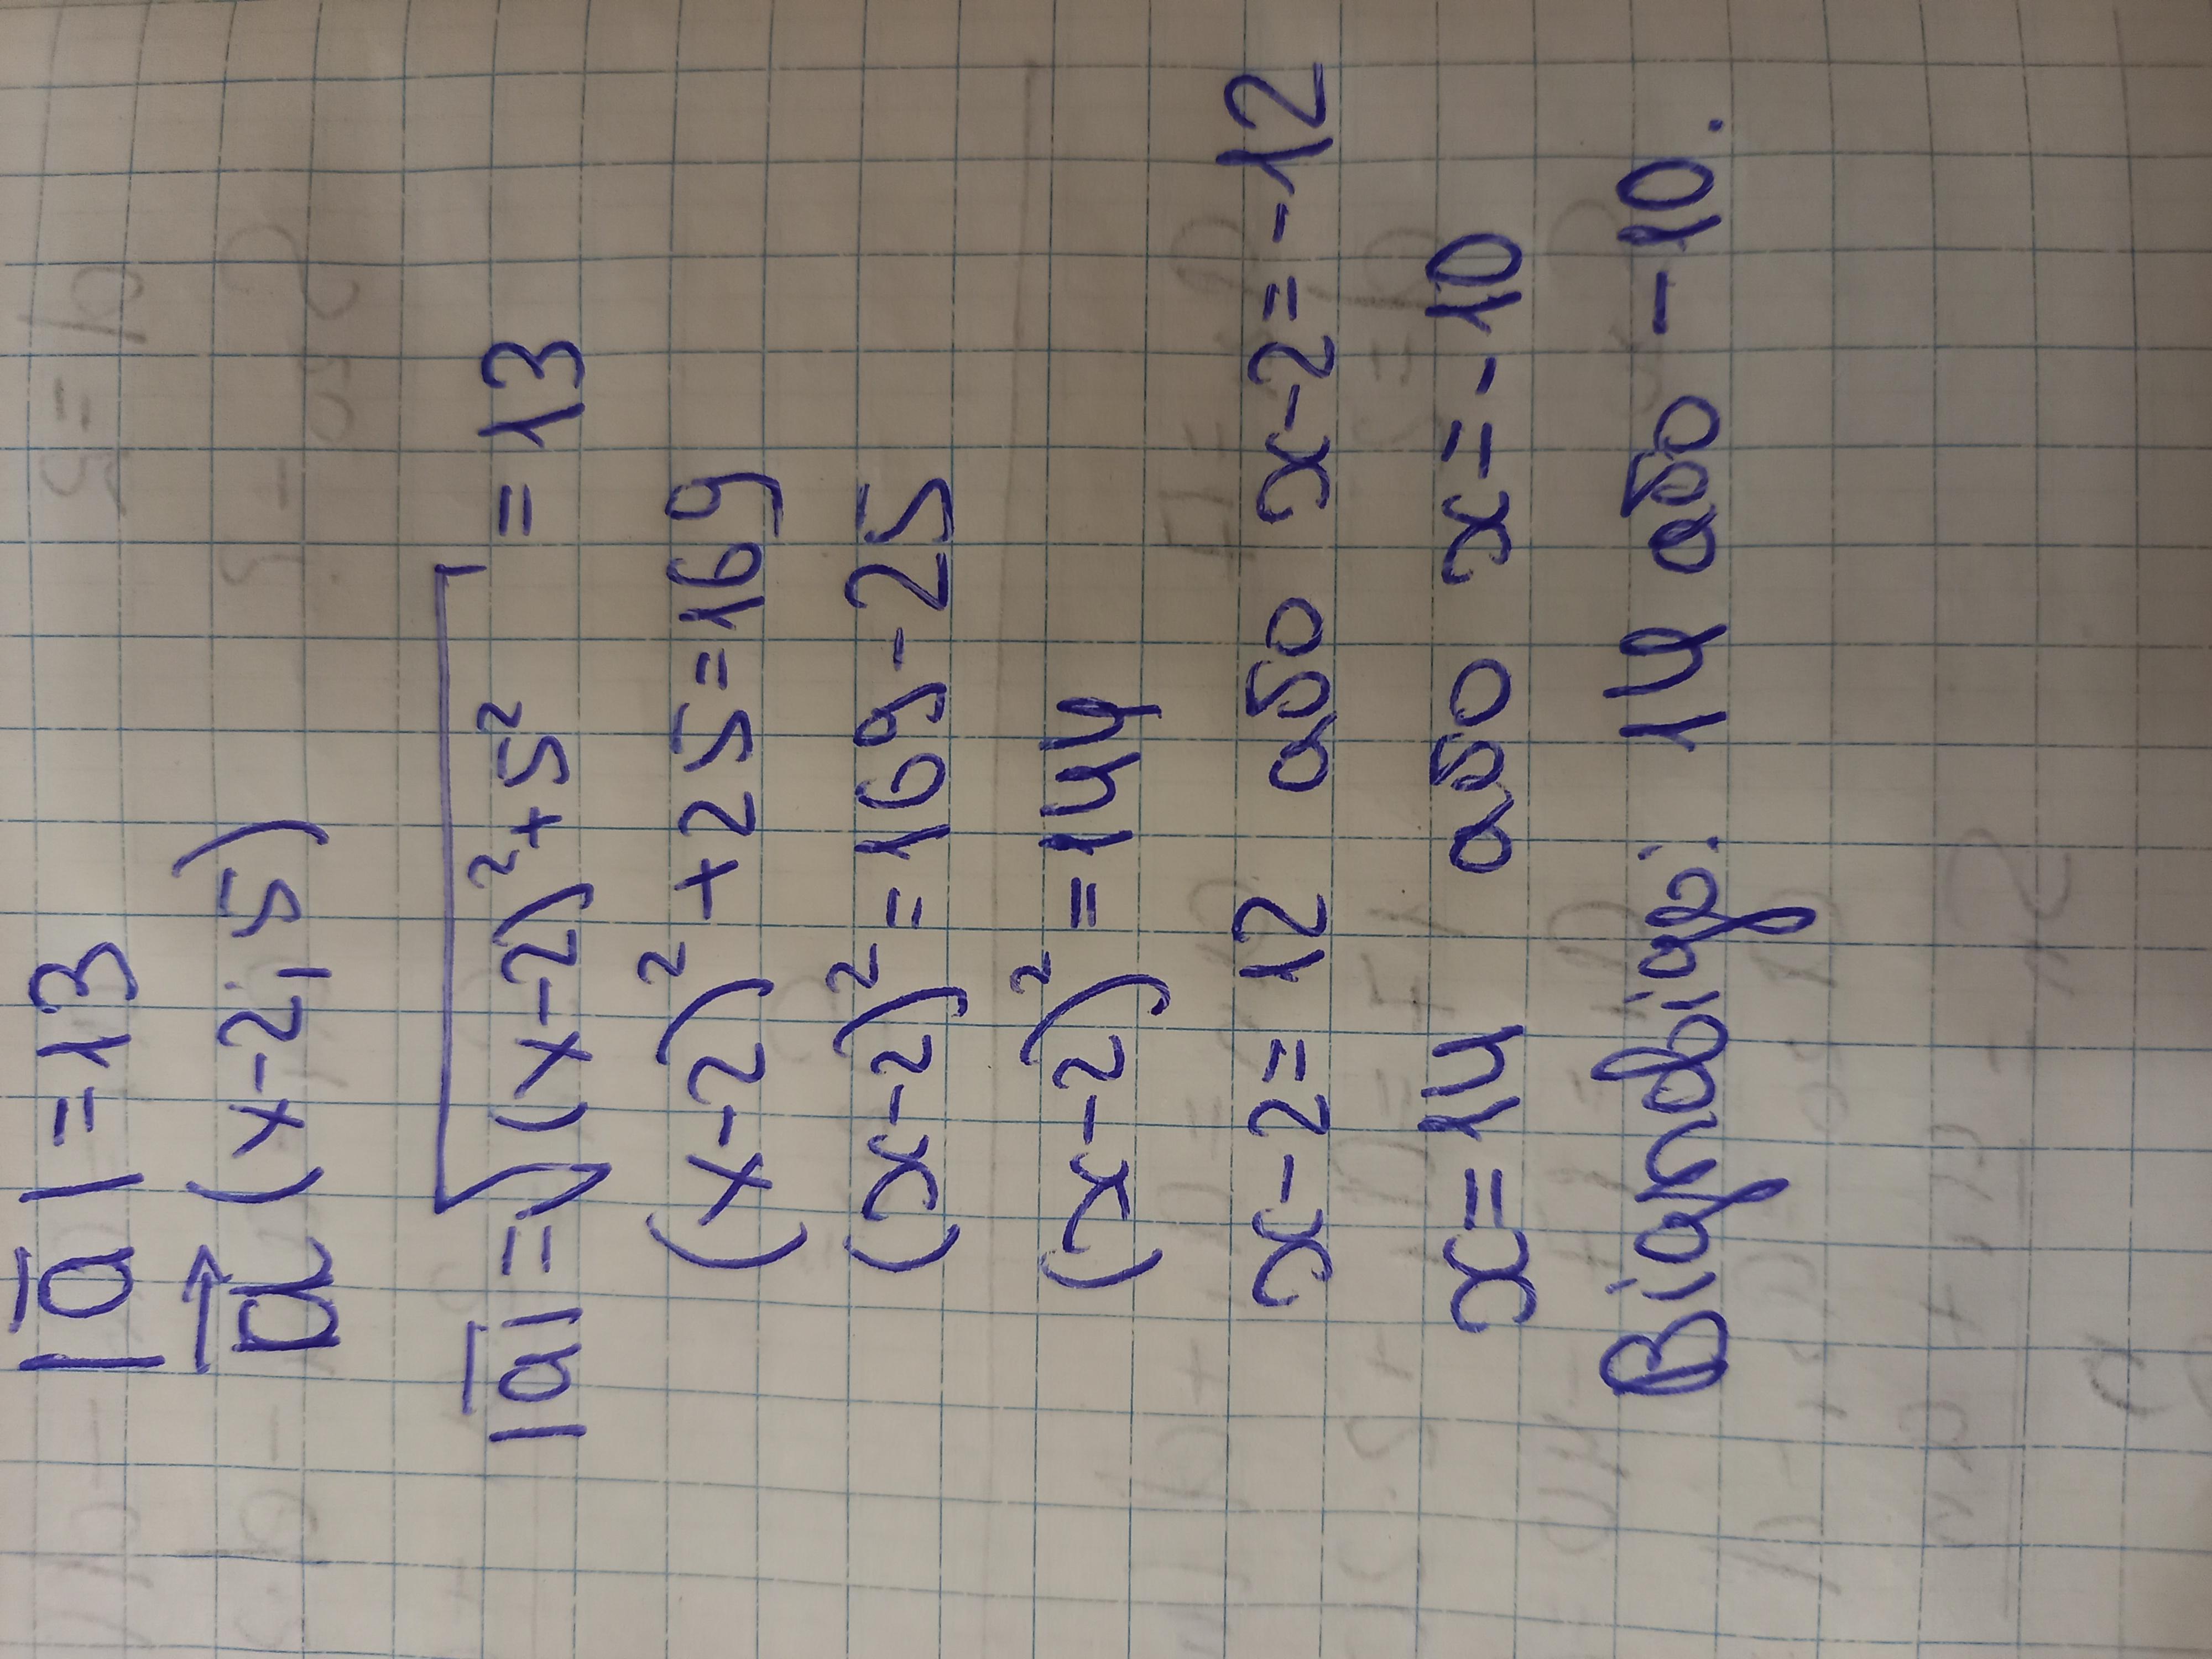 |a̅|=13
a⃗ (x-2; 5)
|a̅|=√(x-2)²+5² = 13
(x-2)²+25=169
(x-2)²=169-25
(x-2)²=144
x-2=12 або x-2=-12
x=14 або x=-10
Відповідь: 14 або -10.